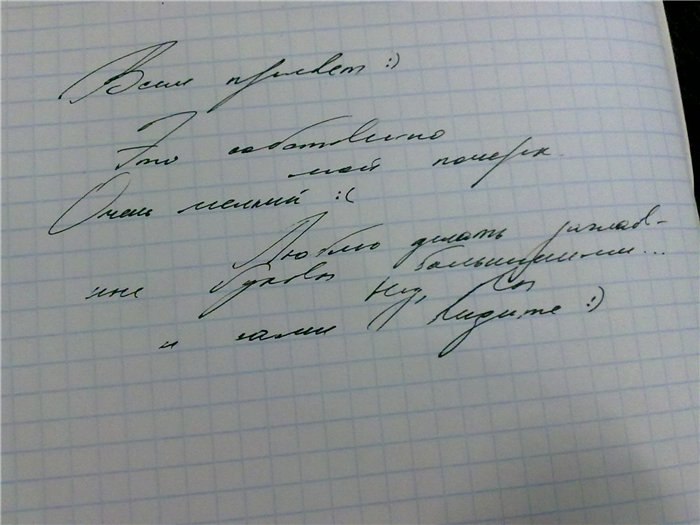 Всем привет :)
Это собственно
мой почерк
Очень мелкий :(
Люблю делать заглав-
ные буквы большими...
Ну, вы
и сами видите :)